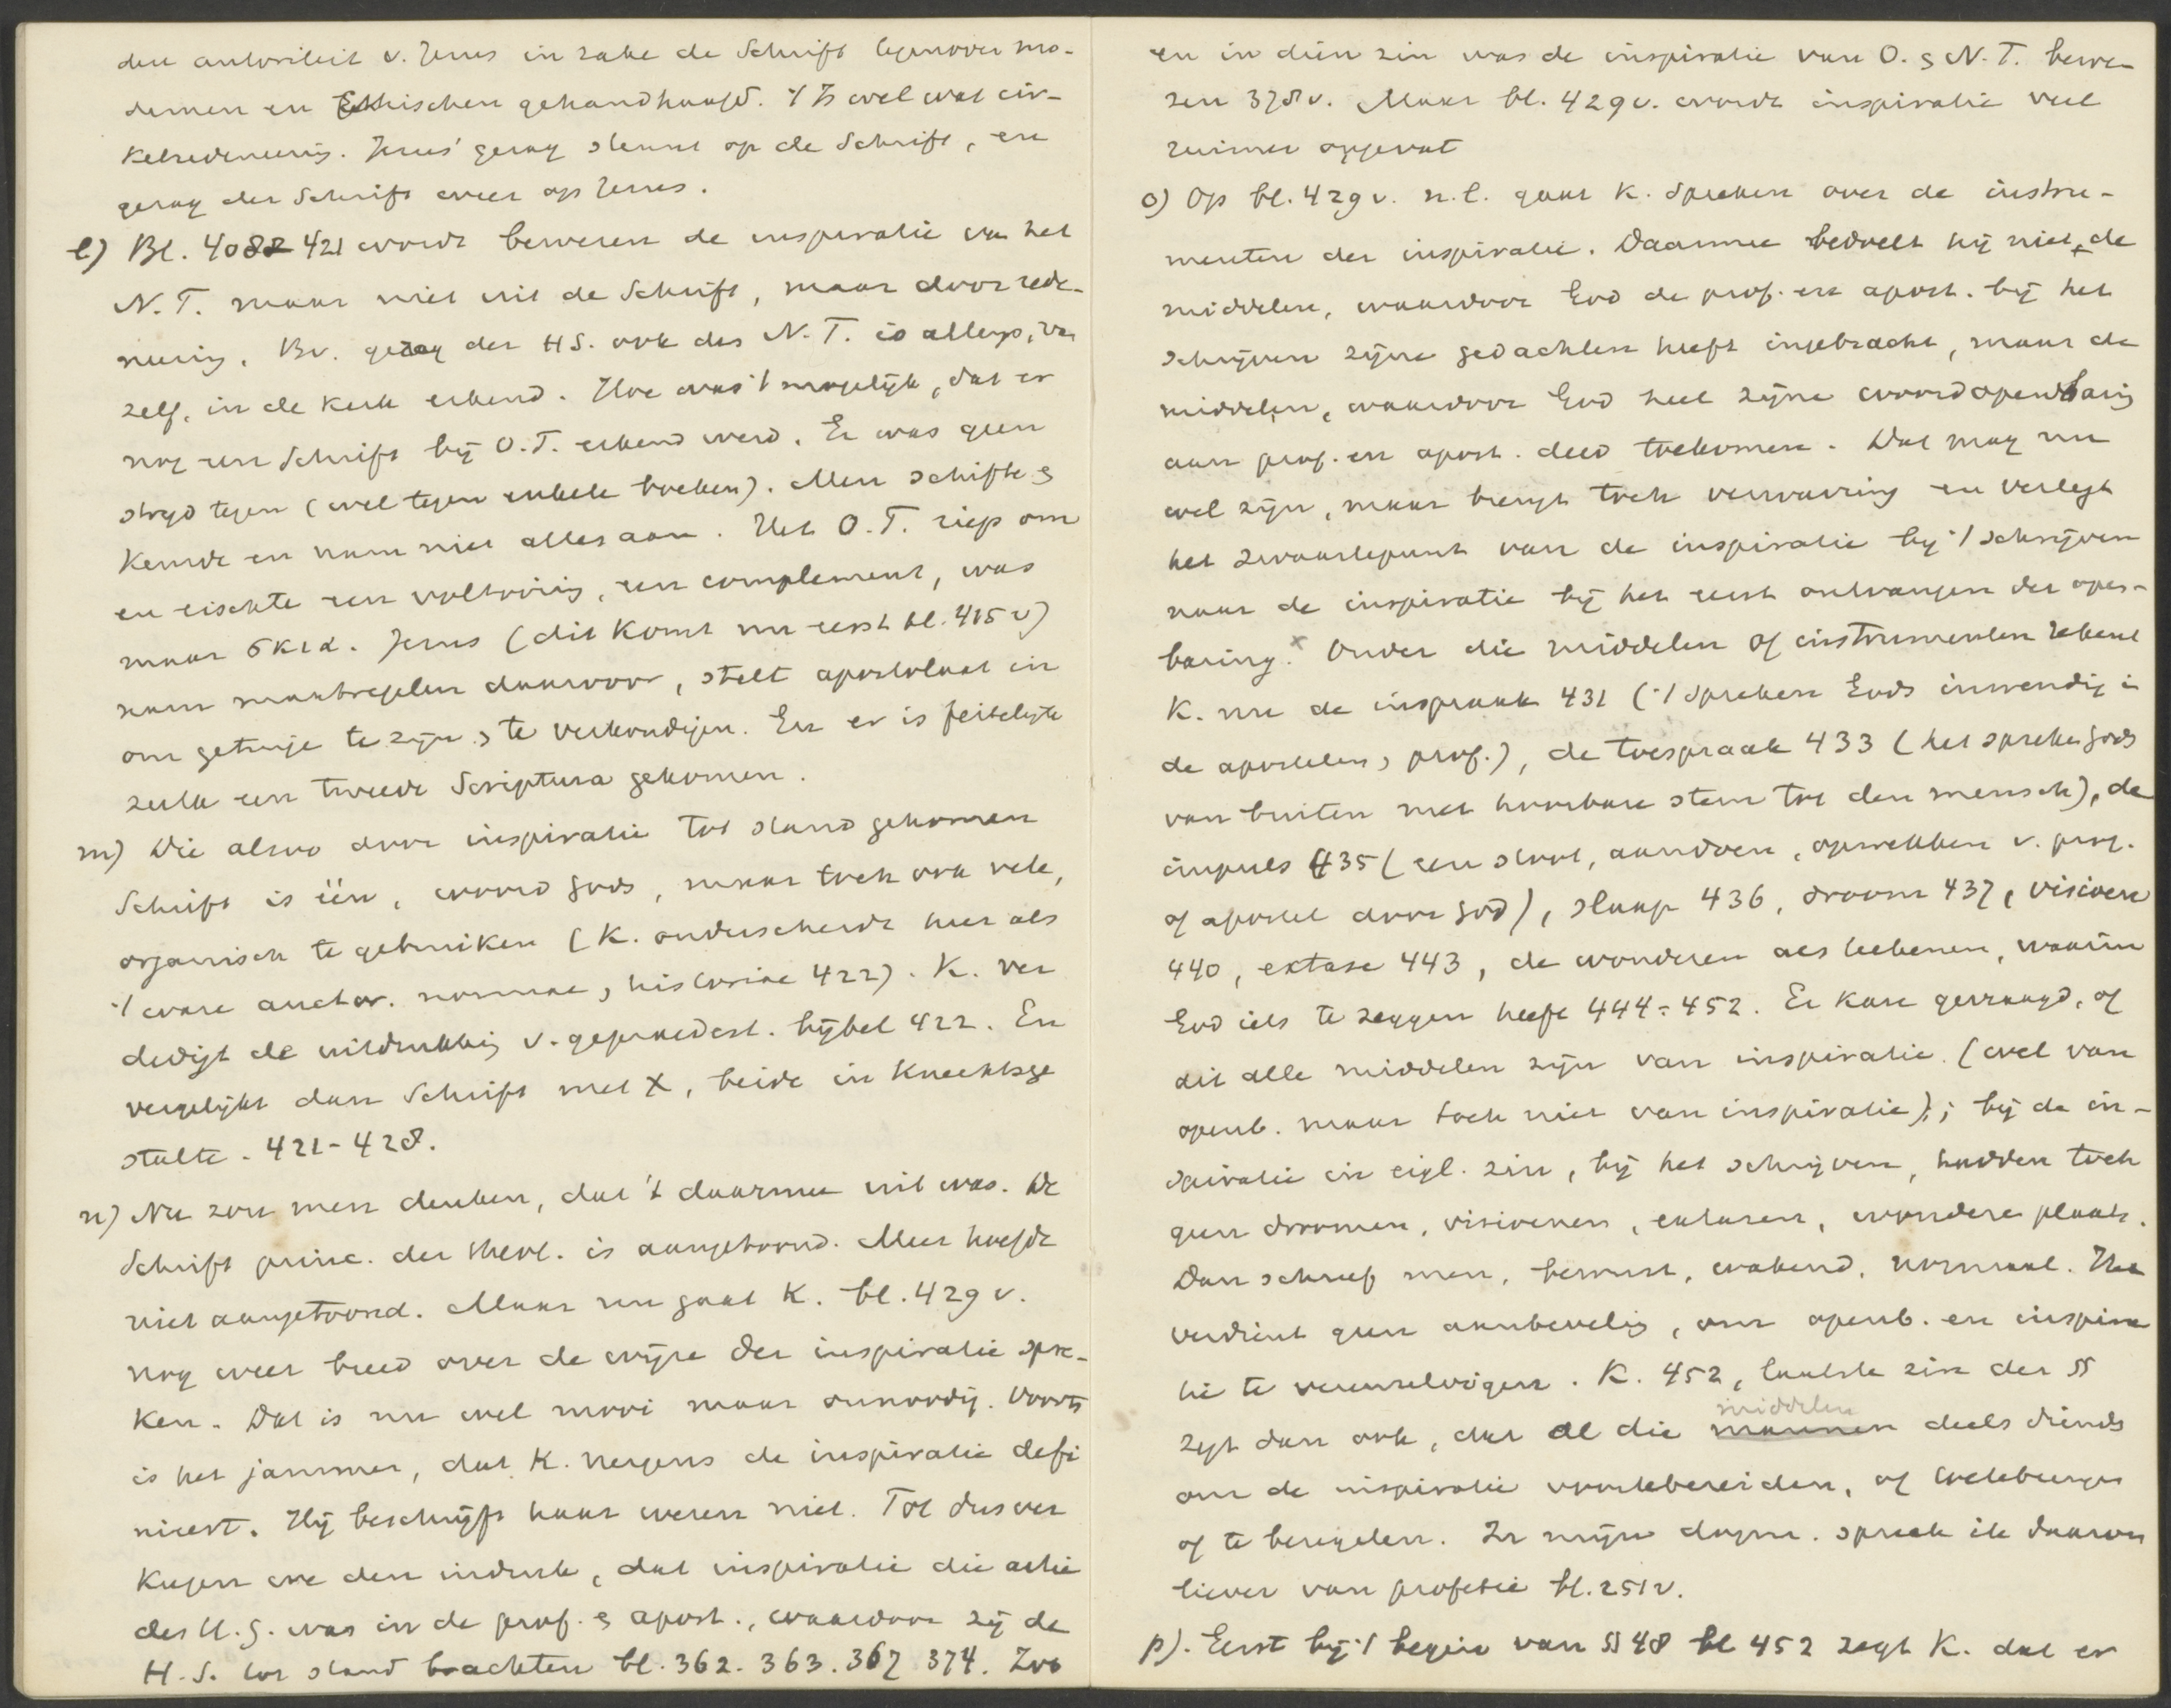 den autoriteit v. Jezus in zake de Schrift tegenover mo-
dernen en Ethischen gehandhaafd. 't Is wel wat cir-
kelredeneering. Jezus' gezag steunt op de Schrift, en
gezag der Schrift weer op Jezus.
l) Bl. 408 421 wordt bewezen de inspiratie van het
N. T. maar niet uit de Schrift, maar door rede-
neering. Bv. gezag der HS. ook des N. T. is allengs, van
zelf, in de kerk erkend. Hoe was 't mogelijk, dat er
nog een Schrift bij O.T. erkend werd. Er was geen
strijd tegen (wel tegen enkele boeken). Men schifte &
keurde en nam niet alles aan. Het O.T. riep om
en eischte een voltooiing, een complement, was
maar σκια. Jezus (dit komt nu eerst bl. 415 v)
nam maatregelen daarvoor, stelt apostolaat in
om getuige te zijn & te verkondigen. En er is feitelijk
zulk een tweede Scriptura gekomen.
m) Die alzoo door inspiratie tot stand gekomen
Schrift is één, woord Gods, maar toch ook vele,
organisch te gebruiken (K. onderscheidt hier als
't ware auctor. normae, historiae 422). K. ver
dedigt de uitdrukking v. gepraedest. bijbel 422. En
vergelijkt dan Schrift met X, beide in knechtsge
stalte. 421-428.
n) Nu zou men denken, dat 't daarmee uit was. De
Schrift princ. der theol. is aangetoond. Meer hoefde
niet aangetoond. Maar nu gaat K. bl. 429 v.
nog weer breed over de wijze der inspiratie spre-
ken. Dat is nu wel mooi maar onnoodig. Voorts
is het jammer, dat K. nergens de inspiratie defi
nieert. Hij beschrijft haar wezen niet. Tot dusver
kregen we den indruk, dat inspiratie die actie
des H. G. was in de prof. & apost., waardoor zij de
H. S. tot stand brachten bl. 362. 363. 367 374. Zoo
en in dien zin was de inspiratie van O. & N. T. bewe-
zen 378 v. Maar bl. 429 v. wordt inspiratie veel
ruimer opgevat
o) Op bl. 429 v. n.l. gaat K. spreken over de instru-
menten der inspiratie. Daarmee bedoelt hij niet de
middelen, waardoor God de prof. en apost. bij het
schrijven zijne gedachten heeft ingebracht, maar de
middelen, waardoor God heel zijne woordopenbaring
aan prof. en apost. deed toekomen. Dat mag nu
wel zijn, maar brengt toch verwarring en verlegt
het zwaartepunt van de inspiratie bij 't schrijven
naar de inspiratie bij het eerst ontvangen der open-
baring. x Onder die middelen of instrumenten rekent
K. nu de inspraak 431 ('t spreken Gods inwendig in
de apostelen, prof.), de toespraak 433 (het spreken Gods
van buiten met hoorbare stem tot den mensch), de
impuls 435 (een stoot, aandoen, opwekken v. prof.
of apostel door God), slaap 436, droom 437, visioen
440, extase 443, de wonderen als teekenen, waarin
God iets te zeggen heeft 444-452. Er kan gevraagd, of
dit alle middelen zijn van inspiratie. (wel van
openb. maar toch niet van inspiratie); bij de in-
spiratie in eigl. zin, bij het schrijven, hadden toch
geen droomen, visioenen, extasen, wonderen plaats.
Dan schreef men, bewust, wakend, normaal. Het
verdient geen aanbeveling, om openb. en inspira
tie te vereenzelvigen. K. 452, laatste zin der §
zegt dan ook, dat al die mannen middelen deels dienden
om de inspiratie voortebereiden, of
of te bezegelen. In mijne dogm. spreek ik daarvan
liever van profetie bl. 251 v.
p). Eerst bij 't begin van § 48 bl 452 zegt K. dat er